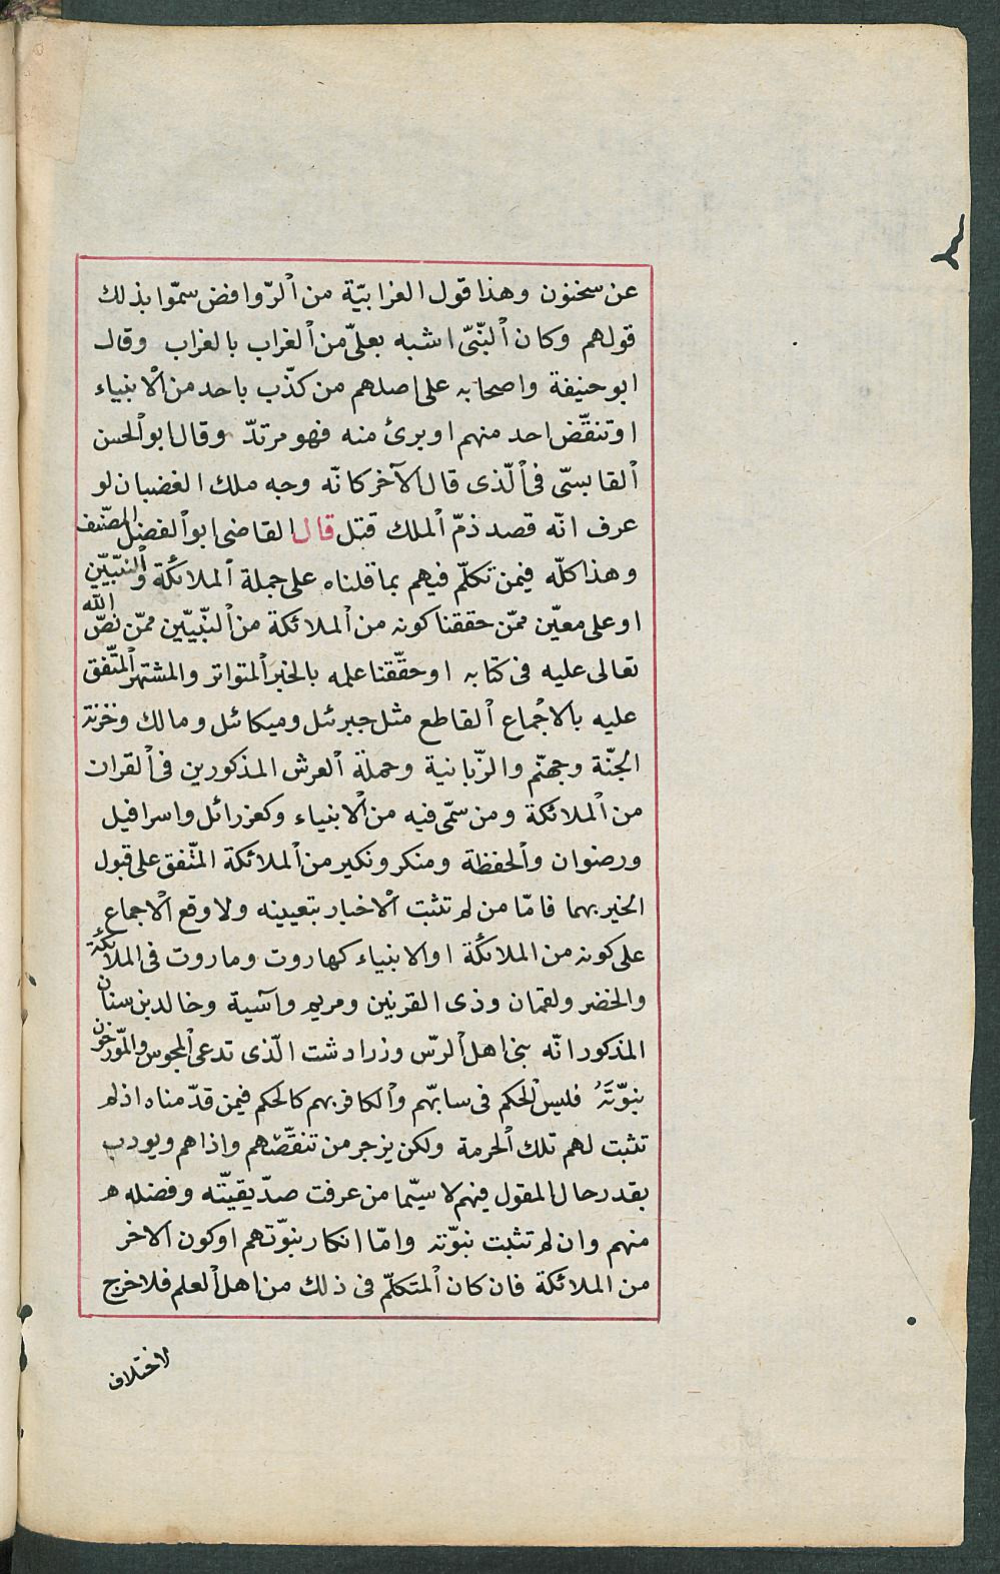 عن سحنون وهذا قول الغرابيّة من الرّوافض سمّوا بذلك
قولهم وكان النّبىّ اشبه بعلىّ من الغراب بالغراب وقال
ابو حنيفة واصحابه على اصلهم من كذّب باحد من الانبياء
او تنقّض احد منهم او برئ منه فهو مرتدّ وقال ابو الحسن
القابسىّ فى الّذى قال لآخر كانّه وجه ملك الغضبان لو
عرف انّه قصد ذمّ الملك قتل قال القاضى ابو الفضل المصّنف
وهذا كلّه فيمن تكلّم فيهم بما قلناه على جملة الملائكة والنّبيّين
او على معيّن ممّن حققنا كونه من الملائكة من النّبيّين ممّن نصّ الله
تعالى عليه فى كتابه او حقّقنا علمه بالخبر المتواتر والمشتهر المتّفق
عليه بالاجماع القاطع مثل جبرئل وميكائل ومالك وخزنة
الجنّة وجهنّم والزّبانية وحملة العرش المذكورين فى القران
من الملائكة ومن سمّى فيه من الانبياء وكعزرائل واسرافيل
ورضوان والحفظة ومنكر ونكير من الملائكة المتّفق على قبول
الخير بهما فامّا من لم تثبت الاخبار بتعيينه ولا وقع الاجماع
على كونه من الملائكة او الانبياء كهاروت وماروت فى الملائكة
والخضر ولقمان وذى القرنين ومريم واسية وخالد بن سنان
المذكور انّه نبى اهل الرسّ وزرادشت الّذى تدعى المجوس والمّورخون
نبوّتَهُ فليس الحكم فى سابّهم والكافر بهم كالحكم فيمن قدّمناه اذ لم
تثبت لهم تلك الحرمة ولكن يزجر من تنقّصهم واذاهم ويودب
بقدر حال المقول فيهم لا سيّما من عرفت صدّيقيتّه وفضله
منهم وان لم تثبت نبوّته وامّا انكار نبوّتهم او كون الاخر
من الملائكة فان كان المتكلّم فى ذلك من اهل العلم فلا خرج
لاختلاف